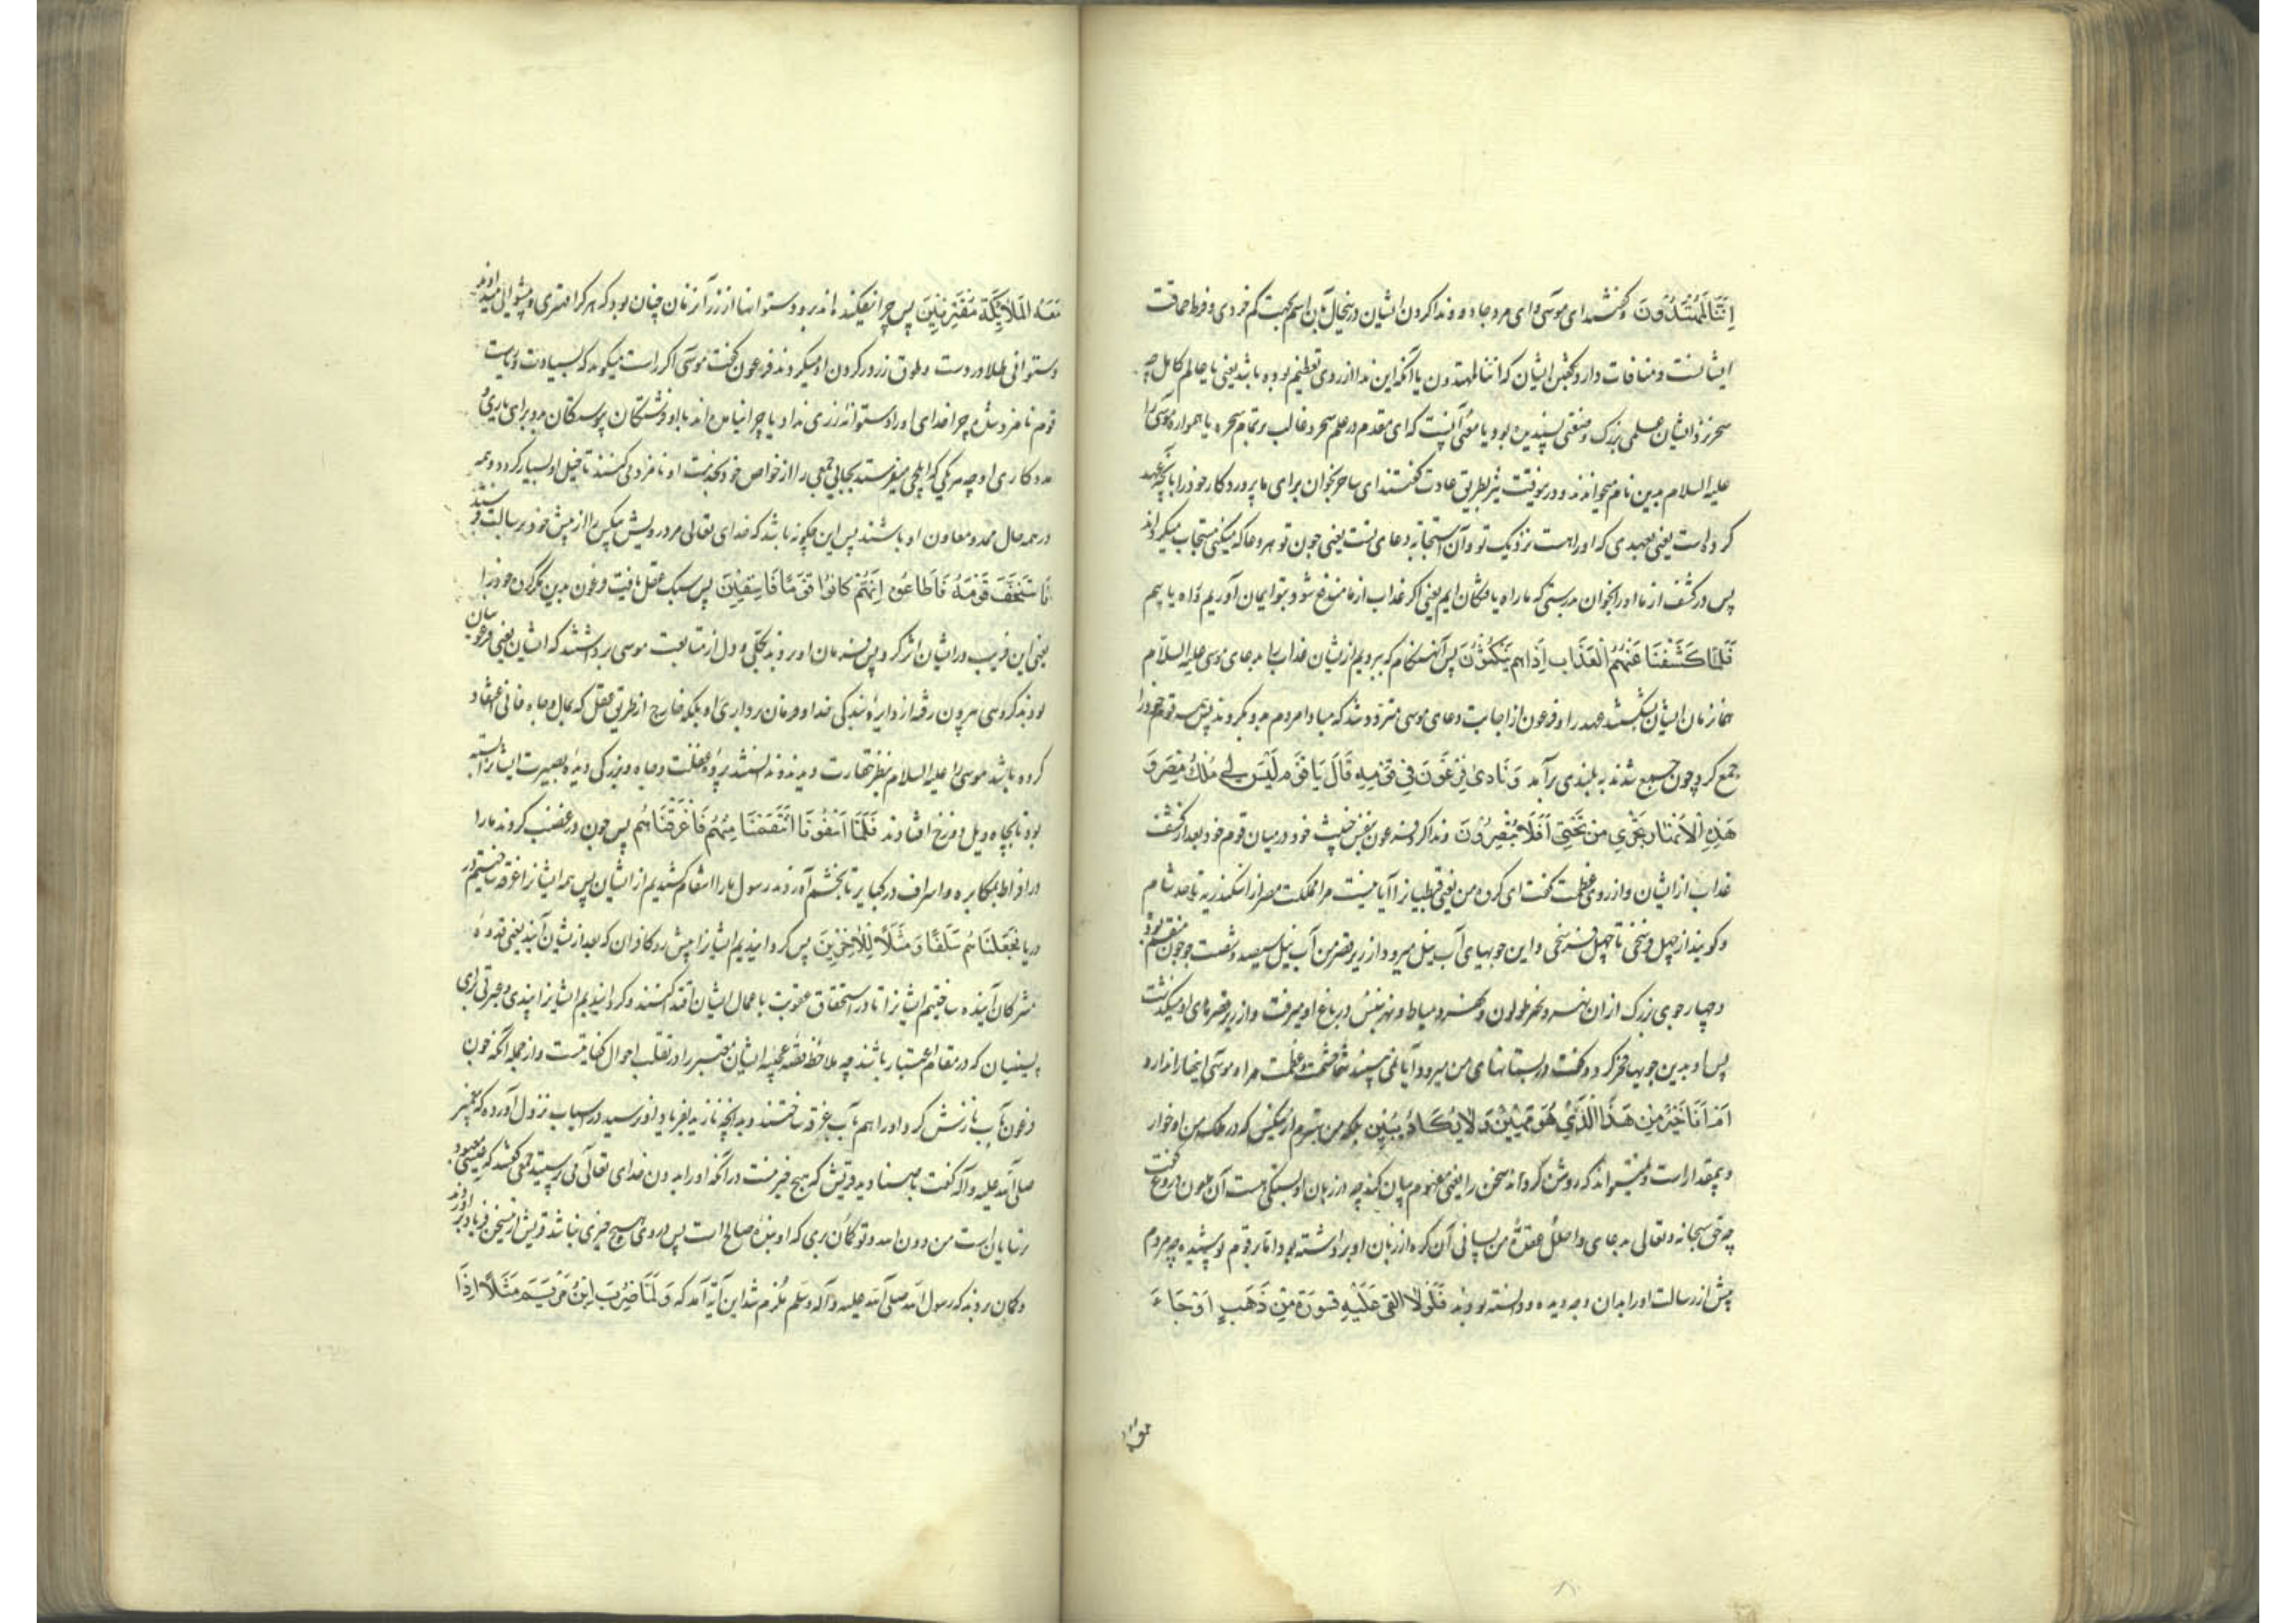 إِنَّنَا لَمُهْتَدُونَ و گفتند ای موسی و ای مرد جادو و ندا کردن ایشان در چنین حال بآن اسم بجهت کم خردی و فرط حماقت
ایشانست و منافات دارد بگفتن ایشان که اننا لمهتدون یا آنکه این ندا از روی تعظیم بوده باشد یعنی یا عالم کامل چه
سحر نزد ایشان علمی بزرگ و صنعتی پسندیده بود و یا معنی آنست که ای مقدم در علم سحر و غالب بر تمام سحره یا همواره موسی را
علیه السلام بدین نام میخواندند و درینوقت نیز بطریق عادت گفتند ای ساحر بخوان برای ما پروردگار خود را بآنچه عهد
کرده است یعنی بعهدی که او راست نزدیک تو و آن استجابه دعای تست یعنی چون تو هر دعا که میکنی مستجاب میگرداند
پس در کشف از ما او را بخوان بدرستی که ما راه یافتگان ایم یعنی اگر عذاب از ما مندفع شود بتو ایمان آوریم و راه یابیم
فَلَمَّا كَشَفْنَا عَنْهُمُ الْعَذَابَ إِذَا هُمْ يَنْكُثُونَ پس آنهنگام که ببردیم از ایشان عذاب را بدعای موسی علیه السلام
همانزمان ایشان بشکستند عهد را و فرعون از اجابت دعای موسی متردد شد که مبادا مردم بدو بگروند پس قوم خود را
جمع کرد و چون جمع شدند به بلندی برآمد وَنَادَى فِرْعَوْنُ فِي قَوْمِهِ قَالَ يَا قَوْمِ أَلَيْسَ لِي مُلْكُ مِصْرَ وَ
هَذِهِ الْأَنْهَارُ تَجْرِي مِنْ تَحْتِي أَفَلَا تُبْصِرُونَ و ندا کرد فرعون بنفس خبیث خود در میان قوم خود بعد از کشف
عذاب از ایشان و از روی عظمت گفت ای گروه من یعنی قبطیان را آیا نیست مرا مملکت مصر از اسکندریه تا حد شام
و گویند از چهل فرسخی تا چهل فرسخی و این جویهای آب نیل میرود از زیر قصر من آب نیل سیصد و شصت جو چون منقسم بود
و چهار جوی بزرگ از ان نهر و نهر طولون و نهر دمیاط و نهر تنیس در باغ او میرفت و از زیر قصرهای او میگذشت
پس او بدین جویها فخر کرد و گفت در بستانهای من میرود آیا نمی بینید شما حشمت و عظمت مرا و موسی اینها را ندارد
أَمْ أَنَا خَيْرٌ مِنْ هَذَا الَّذِي هُوَ مَهِينٌ وَلَا يَكَادُ يُبِينُ بلکه من بهترم از ینکس که در ملک من او خوار
و بیمقدار است و نمیتواند که روشن گرداند سخن را یعنی مفهوم بیان کند چه در زبان او بستگی هست آن ملعون دروغ گفت
چه حق سبحانه و تعالی بدعای واحلل عقدة من لسانی آن گره از زبان او برداشته بود اما بر قوم پوشیده چه مردم
پیش از رسالت او را بدان وجه دیده و دانسته بودند فَلَوْلَا أُلْقِيَ عَلَيْهِ أَسْوِرَةٌ مِنْ ذَهَبٍ أَوْ جَاءَ
معه
مَعَهُ الْمَلَائِكَةُ مُقْتَرِنِينَ پس چرا نیفکنده اند برو دستوانها از زر آنزمان چنان بود که هر کرا مهتری و پیشوائی میدادند
دستوانی طلا در دست و طوق زر در گردن او میکردند فرعون گفت موسی اگر راست میگوید که بسیادت و ریاست
قوم نامزد شده چرا خدای او را دستوانه زری نداد یا چرا نیامده اند با او فرشتگان پیوستگان بدو برای یاری و
مددکاری او چه هر یکی که ایلچی میفرستد بجائی جمعی را از خواص خود بخدمت او نامزد میکنند تا خیل او بسیار گردد و همه
در همه حال ممد و معاون او باشند پس این چگونه باشد که خدای تعالی مرد درویش بیکس را از پیش خود برسالت فرستد
فَاسْتَخَفَّ قَوْمَهُ فَأَطَاعُوهُ إِنَّهُمْ كَانُوا قَوْمًا فَاسِقِينَ پس سبک عقل یافت فرعون بدین مکر گروه خود را
یعنی این فریب در ایشان اثر کرد پس فرمان او بردند بکلی و دل از متابعت موسی برداشتند که ایشان یعنی فرعونیان
بودند گروهی بیرون رفته از دایره بندگی خدا و فرمان برداری او بلکه خارج از طریق عقل که بمال و جاه فانی اعتماد
کرده باشد موسی را علیه السلام بنظر حقارت دیدند و ندانستند پرده غفلت و جاه و بزرگی دیده بصیرت ایشان را بسته
بود تا بچاه ویل دوزخ افتادند فَلَمَّا آسَفُونَا انْتَقَمْنَا مِنْهُمْ فَأَغْرَقْنَاهُمْ پس چون در غضب کردند ما را
در افراط بمکابره و اسراف در کبایر تا بخشم آوردند رسول ما را انتقام کشیدیم از ایشان پس همه ایشان را غرقه ساختیم در
دریا فَجَعَلْنَاهُمْ سَلَفًا وَمَثَلًا لِلْآخِرِينَ پس گردانیدیم ایشان را پیش رو کافران که بعد از ایشان آیند یعنی قدوه
مشرکان آینده ساختیم ایشان را تا در استحقاق عقوبت باعمال ایشان اقتدا کنند و گردانیدیم ایشان را پندی و عبرتی برای
پسینیان که در مقام اعتبار باشند چه ملاحظه قصه عجیبه ایشان معتبر را در تقلب احوال کفایتست و از جمله آنکه چون
فرعون بآب نازش کرد او را هم بآب غرقه ساختند و بدانچه نازید بفریاد او نرسید در اسباب نزول آورده که پیغمبر
صلی الله علیه و آله گفت با صنادید قریش که هیچ خیر نیست در آنکه او را بدون خدای تعالی می پرستید جمعی گفتند که عیسی معبود
ترسایان است من دون الله و تو گمان بری که او بنده صالح است پس در وی هیچ خیری نباشد قریش ازین سخن فریاد برآوردند
و گمان بردند که رسول الله صلی الله علیه و آله و سلم ملزم شد این آیه آمد که وَلَمَّا ضُرِبَ ابْنُ مَرْيَمَ مَثَلًا إِذَا